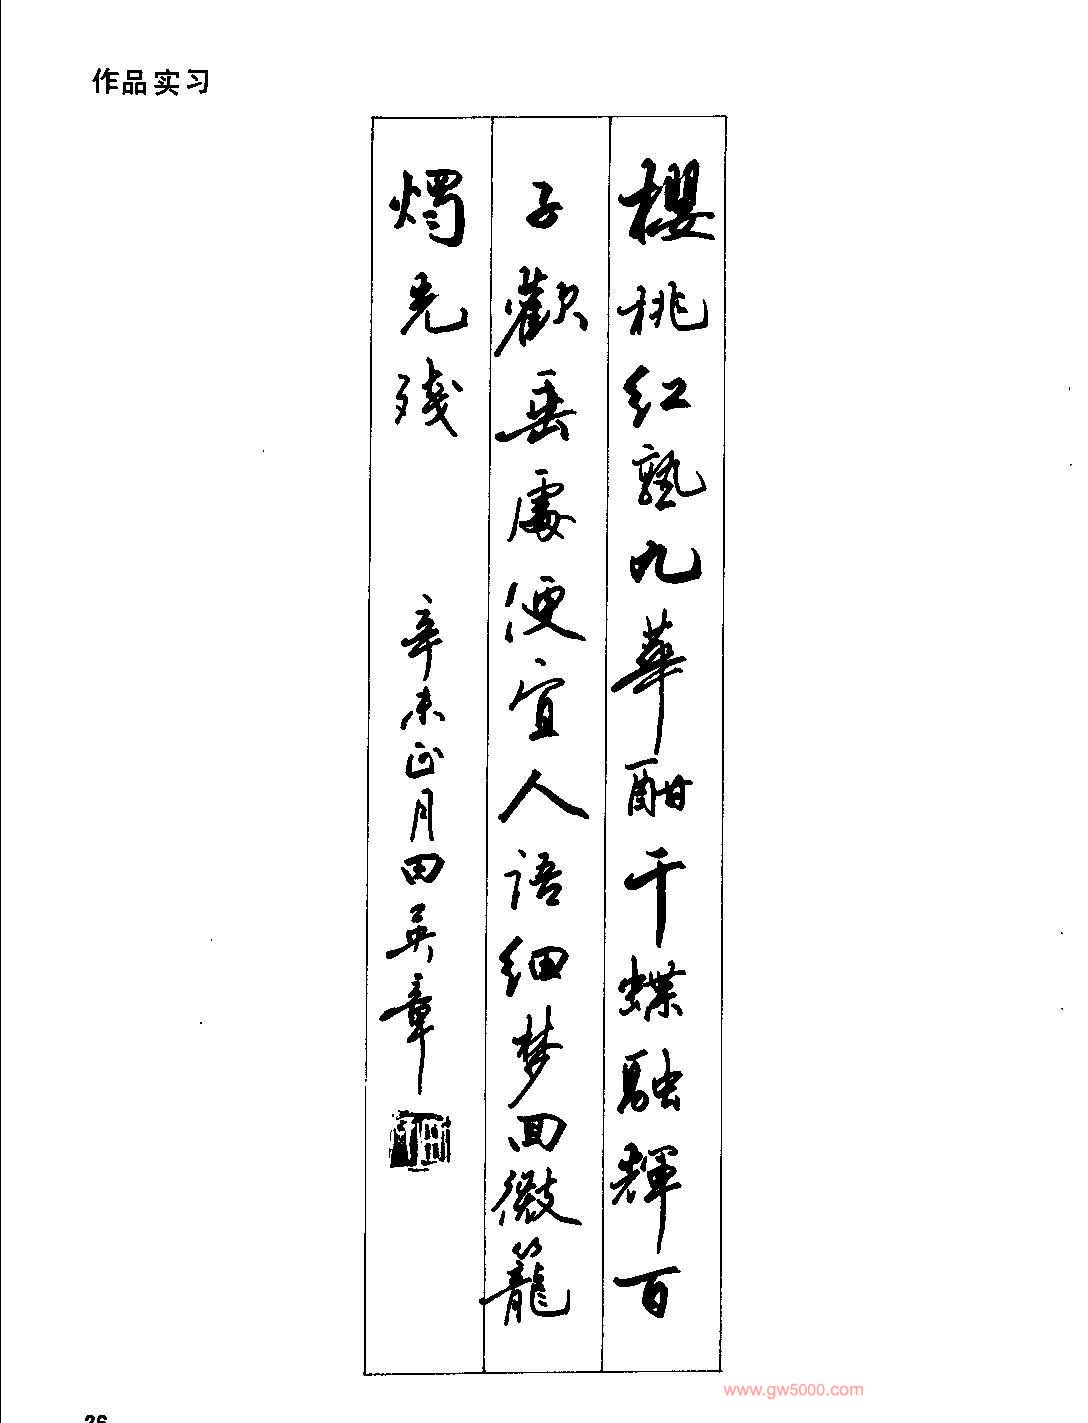 作品实习
櫻桃红熟九華酣千蝶融輝百
子歡垂處便宜人语细梦回微籠
烛光残
辛未正月田英章
www.gw5000.com
26